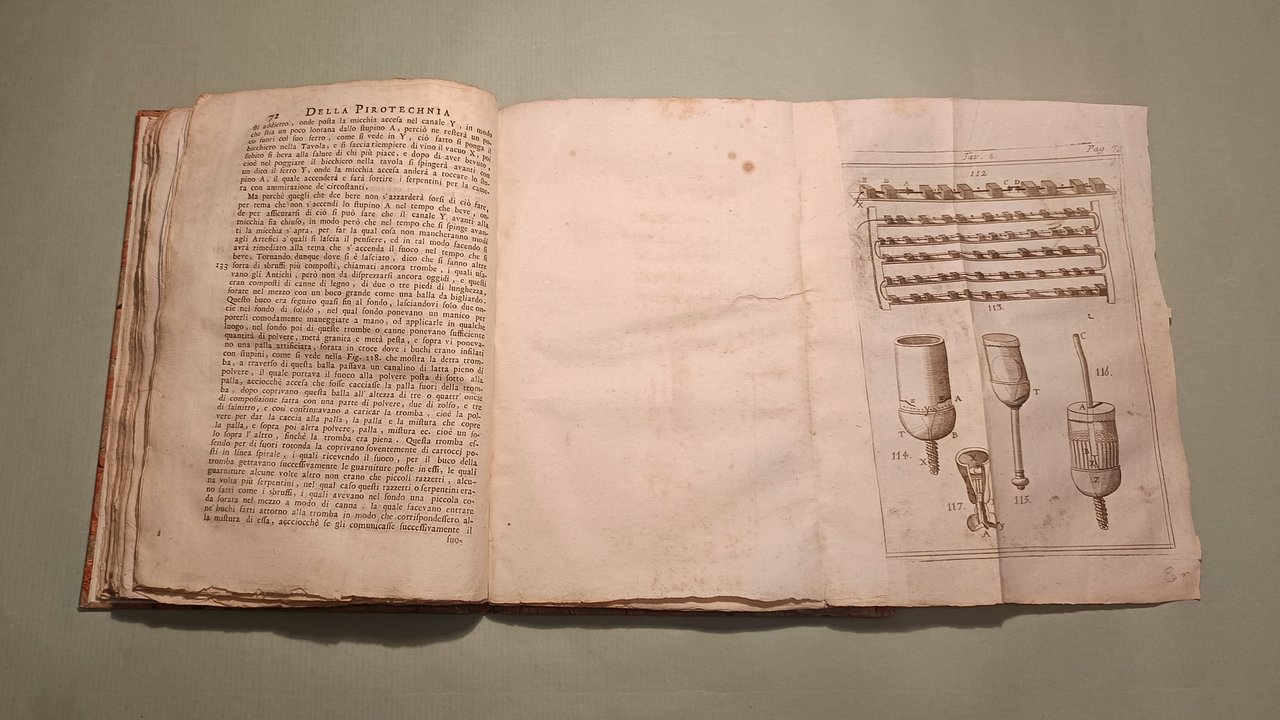 72 DELLA PIROTECHNIA
sti addietro, onde posta la micchia accesa nel canale Y, in modo
che stia un poco lontana dallo stupino A, perciò ne resterà un po-
co fuori col suo ferro, come si vede in Y, ciò fatto si ponga il
bicchiero nella Tavola, e si faccia riempiere di vino il vacuo X, poi
subito si beva alla salute di chi più piace, e dopo di aver bevuto,
cioè nel poggiare il bicchiero nella tavola si spingerà avanti con
un dito il ferro Y, onde la micchia accesa anderà a toccare lo stu-
pino A, il quale accenderà e farà sortire i serpentini per la came-
ra con ammirazione de' circostanti.
Ma perchè quegli che dee bere non s'azzarderà forsi di ciò fare,
per tema che non s'accendi lo stupino A nel tempo che beve, on-
de per assicurarsi di ciò si può fare che il canale Y avanti alla
micchia sia chiuso, in modo però che nel tempo che si spinge avan-
ti la micchia s'apra, per far la qual cosa non mancheranno modi
agli Artefici a' quali si lascia il pensiere, ed in tal modo facendo si
avrà rimediato alla tema che s'accenda il fuoco nel tempo che si
beve. Tornando dunque dove si è lasciato, dico che si fanno altre
133 sorta di sbruffi più composti, chiamati ancora trombe, i quali usa-
vano gli Antichi, però non da disprezzarsi ancora oggidì, e questi
eran composti di canne di legno, di due o tre piedi di lunghezza,
forate nel mezzo con un buco grande come una balla da bigliardo.
Questo buco era seguito quasi fin al fondo, lasciandovi solo due on-
cie nel fondo di solido, nel qual fondo ponevano un manico per
poterli comodamente maneggiare a mano, od applicarle in qualche
luogo, nel fondo poi di queste trombe o canne ponevano sufficiente
quantità di polvere, metà granita e metà pesta, e sopra vi poneva-
no una palla artificiata, forata in croce dove i buchi erano infilati
con stupini, come si vede nella Fig. 118. che mostra la detta trom-
ba, a traverso di questa balla passava un canalino di latta pieno di
polvere, il quale portava il fuoco alla polvere posta di sotto alla
palla, acciocchè accesa che fosse cacciasse la palla fuori della trom-
ba, dopo coprivano questa balla all'altezza di tre o quattr'oncie
di composizione fatta con una parte di polvere, due di zolfo, e tre
di salnitro, e così continuavano a caricar la tromba, cioè la pol-
vere per dar la caccia alla palla, la palla e la mistura che copre
la palla, e sopra poi altra polvere, palla, mistura ec. cioè un so-
lo sopra l'altro, finchè la tromba era piena. Questa tromba es-
sendo per di fuori rotonda la coprivano soventemente di cartocci po-
sti in linea spirale, i quali ricevendo il fuoco, per il buco della
tromba gettavano successivamente le guarniture poste in essi, le quali
guarniture alcune volte altro non erano che piccoli razzetti, alcu-
na volta più serpentini, nel qual caso questi razzetti o serpentini era-
no fatti come i sbruffi, i quali avevano nel fondo una piccola co-
da forata nel mezzo a modo di canna, la quale facevano entrare
ne' buchi fatti attorno alla tromba in modo che corrispondessero al-
la mistura di essa, acciocchè se gli comunicasse successivamente il
fuo-
Tav. 8. Pag. 72
112
B E A C D
113.
C
116.
T
A
Z Y A
T B
B
Z
114. X
X
117.
115.
Y
A